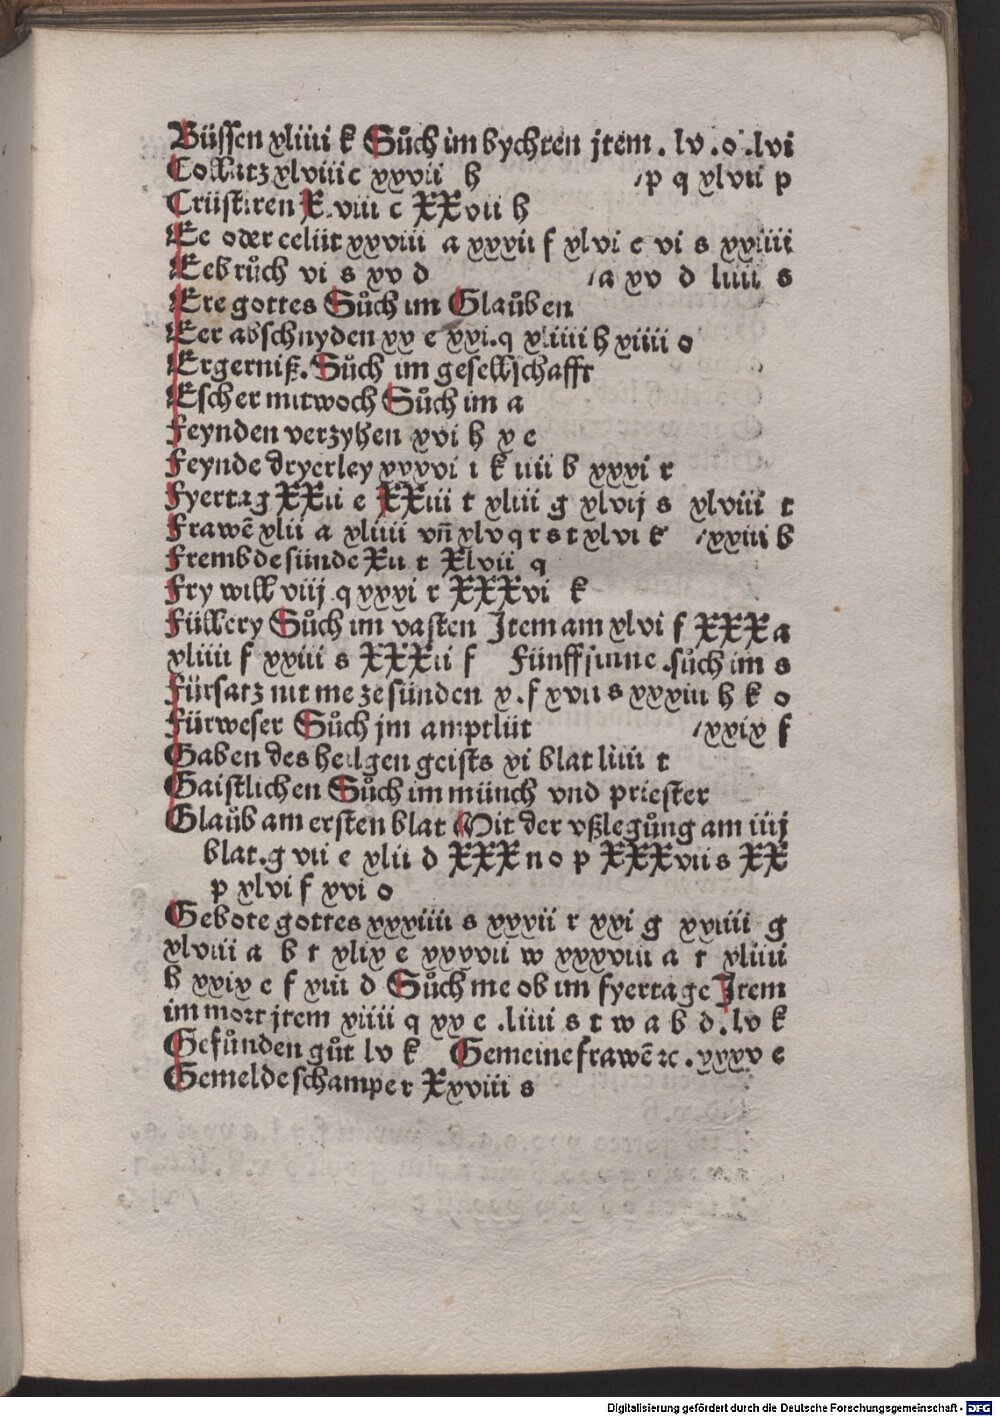 Büssen xliiii k Sůch im bychten jtem . lv . o . lvi
Collatz xlviii c xxvii h /p q xlvii p
Crüstiren X.viii c XXvii h
Ee oder celüt xxviii a xxxii f xlvi c vi s xxiiii
Eebrůch vi s xv d /a xv d liiii s
Ere gottes Sůch im Glaůben
Eer abschnyden xx e xxi.q xliiii h xiiii o
Ergerniß. Sůch im gesellschafft
Escher mitwoch Sůch im a
Feynden verzyhen xvi h x e
Feynde dryerley xxxvi i k iiii b xxxi r
Fyertag XXii e XXiii t xliii g xlvij s xlviii t
Frawē xlii a xliiii vn̄ xlv q r s t xlvi k /xxiii b
Frembde sünde Xii t Xlvii q
Fry will viij q xxxi r XXXvi k
Füllery Sůch im vasten Jtem am xlvi f XXX a
xliiii f xxiii s XXXii f Fünff sinne .sůch im s
Fürsatz nit me ze sünden x . f xvii s xxxiii h k o
Fürweser Sůch jm amptlüt /xxix f
Gaben des heilgen geists xi blat liiii t
Gaistlichen Sůch im münch vnd priester
Glaůb am ersten blat Mit der vßlegůng am iiij
blat.g vii e xlii d XXX n o p XXXvii s XX
p xlvi f xvi o
Gebote gottes xxxiiii s xxxii r xxi g xxiiii g
xlviii a b t xlix e xxxvii w xxxviii a t xliiii
h xxix e f xiii d Sůch me ob im fyertage Jtem
im mort jtem xiiii q xx e .liiii s t w a b d . lv k
Gefůnden gůt lv k Gemeine frawē ⁊c . xxxv e
Gemelde schamper Xxviii s
Digitalisierung gefördert durch die Deutsche Forschungsgemeinschaft - DFG